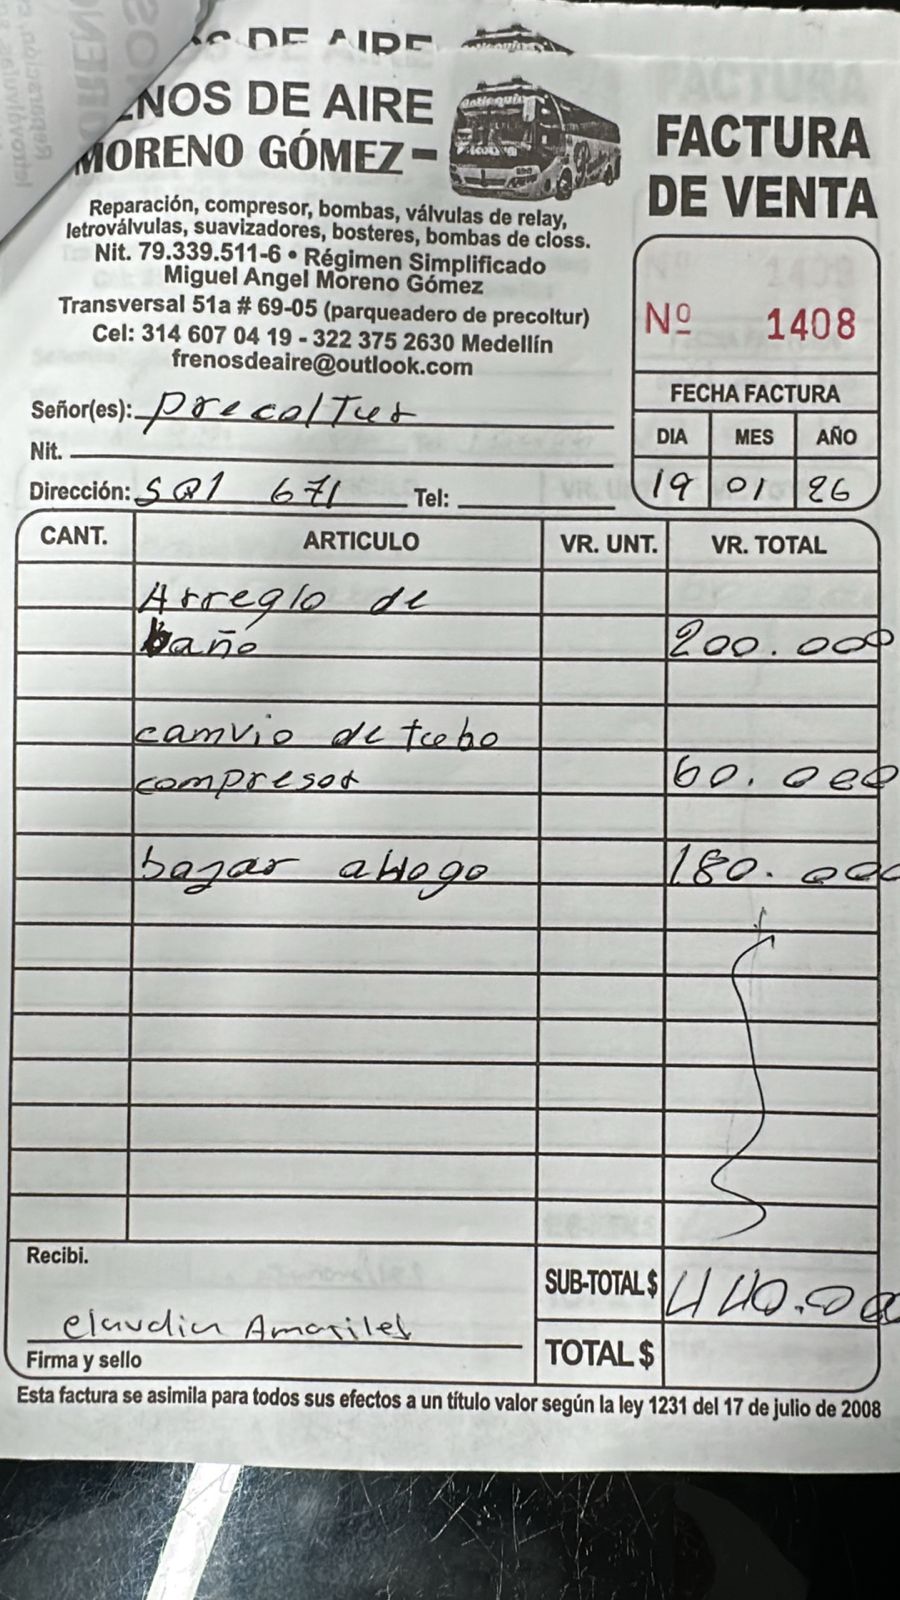 NOS DE AIRE
MORENO GÓMEZ-
Reparación, compresor, bombas, válvulas de relay,
letroválvulas, suavizadores, bosteres, bombas de closs.
Nit. 79.339.511-6 • Régimen Simplificado
Miguel Angel Moreno Gómez
Transversal 51a # 69-05 (parqueadero de precoltur)
Cel: 314 607 04 19 - 322 375 2630 Medellín
frenosdeaire@outlook.com
FACTURA
DE VENTA
Nº 1408
FECHA FACTURA
DIA MES AÑO
19 01 26
Señor(es): precoltur
Nit.
Dirección: SQ1 671 Tel:
CANT. ARTICULO VR. UNT. VR. TOTAL
Arreglo de
baño 200.000
camvio de tubo
compresor 60.000
bajar 180.000
Recibi.
SUB-TOTAL $ 440.00
claudia Amariles
Firma y sello
TOTAL $
Esta factura se asimila para todos sus efectos a un título valor según la ley 1231 del 17 de julio de 2008